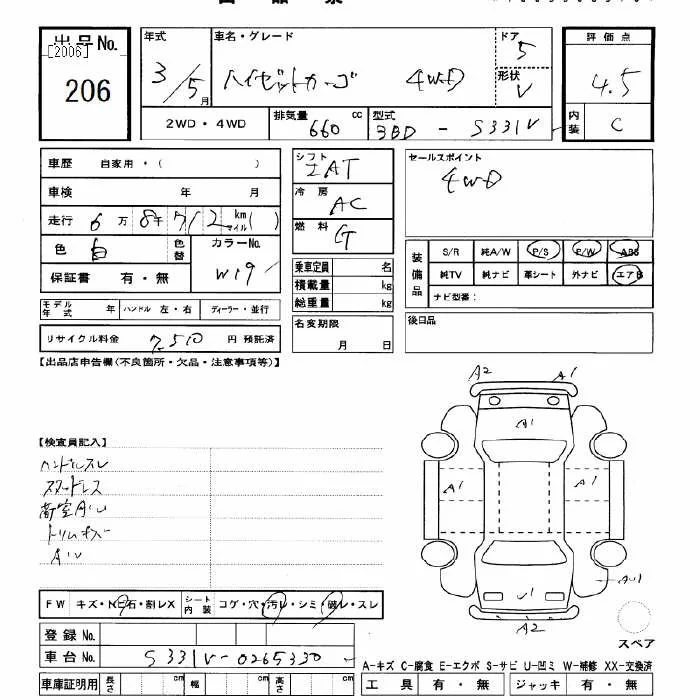 出品No.
[2006]
206
年式
3/5月
車名・グレード
ハイゼットカーゴ 4WD
ドア
5
形状
V
評価点
4.5
内装
C
2WD・4WD
排気量
660
cc
型式
3BD - S331V
車歴 自家用・( )
車検 年 月
走行 6万8千712km( )
マイル
色 白
色替
カラーNo.
W19
保証書 有・無
モデル年式 年 ハンドル 左・右 ディーラー・並行
リサイクル料金 7,510 円 預託済
シフト
IAT
冷房
AC
燃料
G
乗車定員 名
積載量 kg
総重量 kg
名変期限
月 日
セールスポイント
4WD
装備品
S/R 純A/W P/S P/W ABS
純TV 純ナビ 革シート 外ナビ エアB
ナビ型番:
後日品
【出品店申告欄(不良箇所・欠品・注意事項等)】
【検査員記入】
ハンドルスレ
スタッドレス
荷室AU
トリムキズ
AU
A2
A1
A1
A1
A1
U1
A2
FW キズ・NE石・割レX
シート内装
コゲ・穴・汚レ・シミ・破レ・スレ
登録No.
車台No. S331V-0265330
車庫証明用 長さ cm 幅 cm 高さ cm
スペア
A-キズ C-腐食 E-エクボ S-サビ U-凹ミ W-補修 XX-交換済
工具 有・無 ジャッキ 有・無